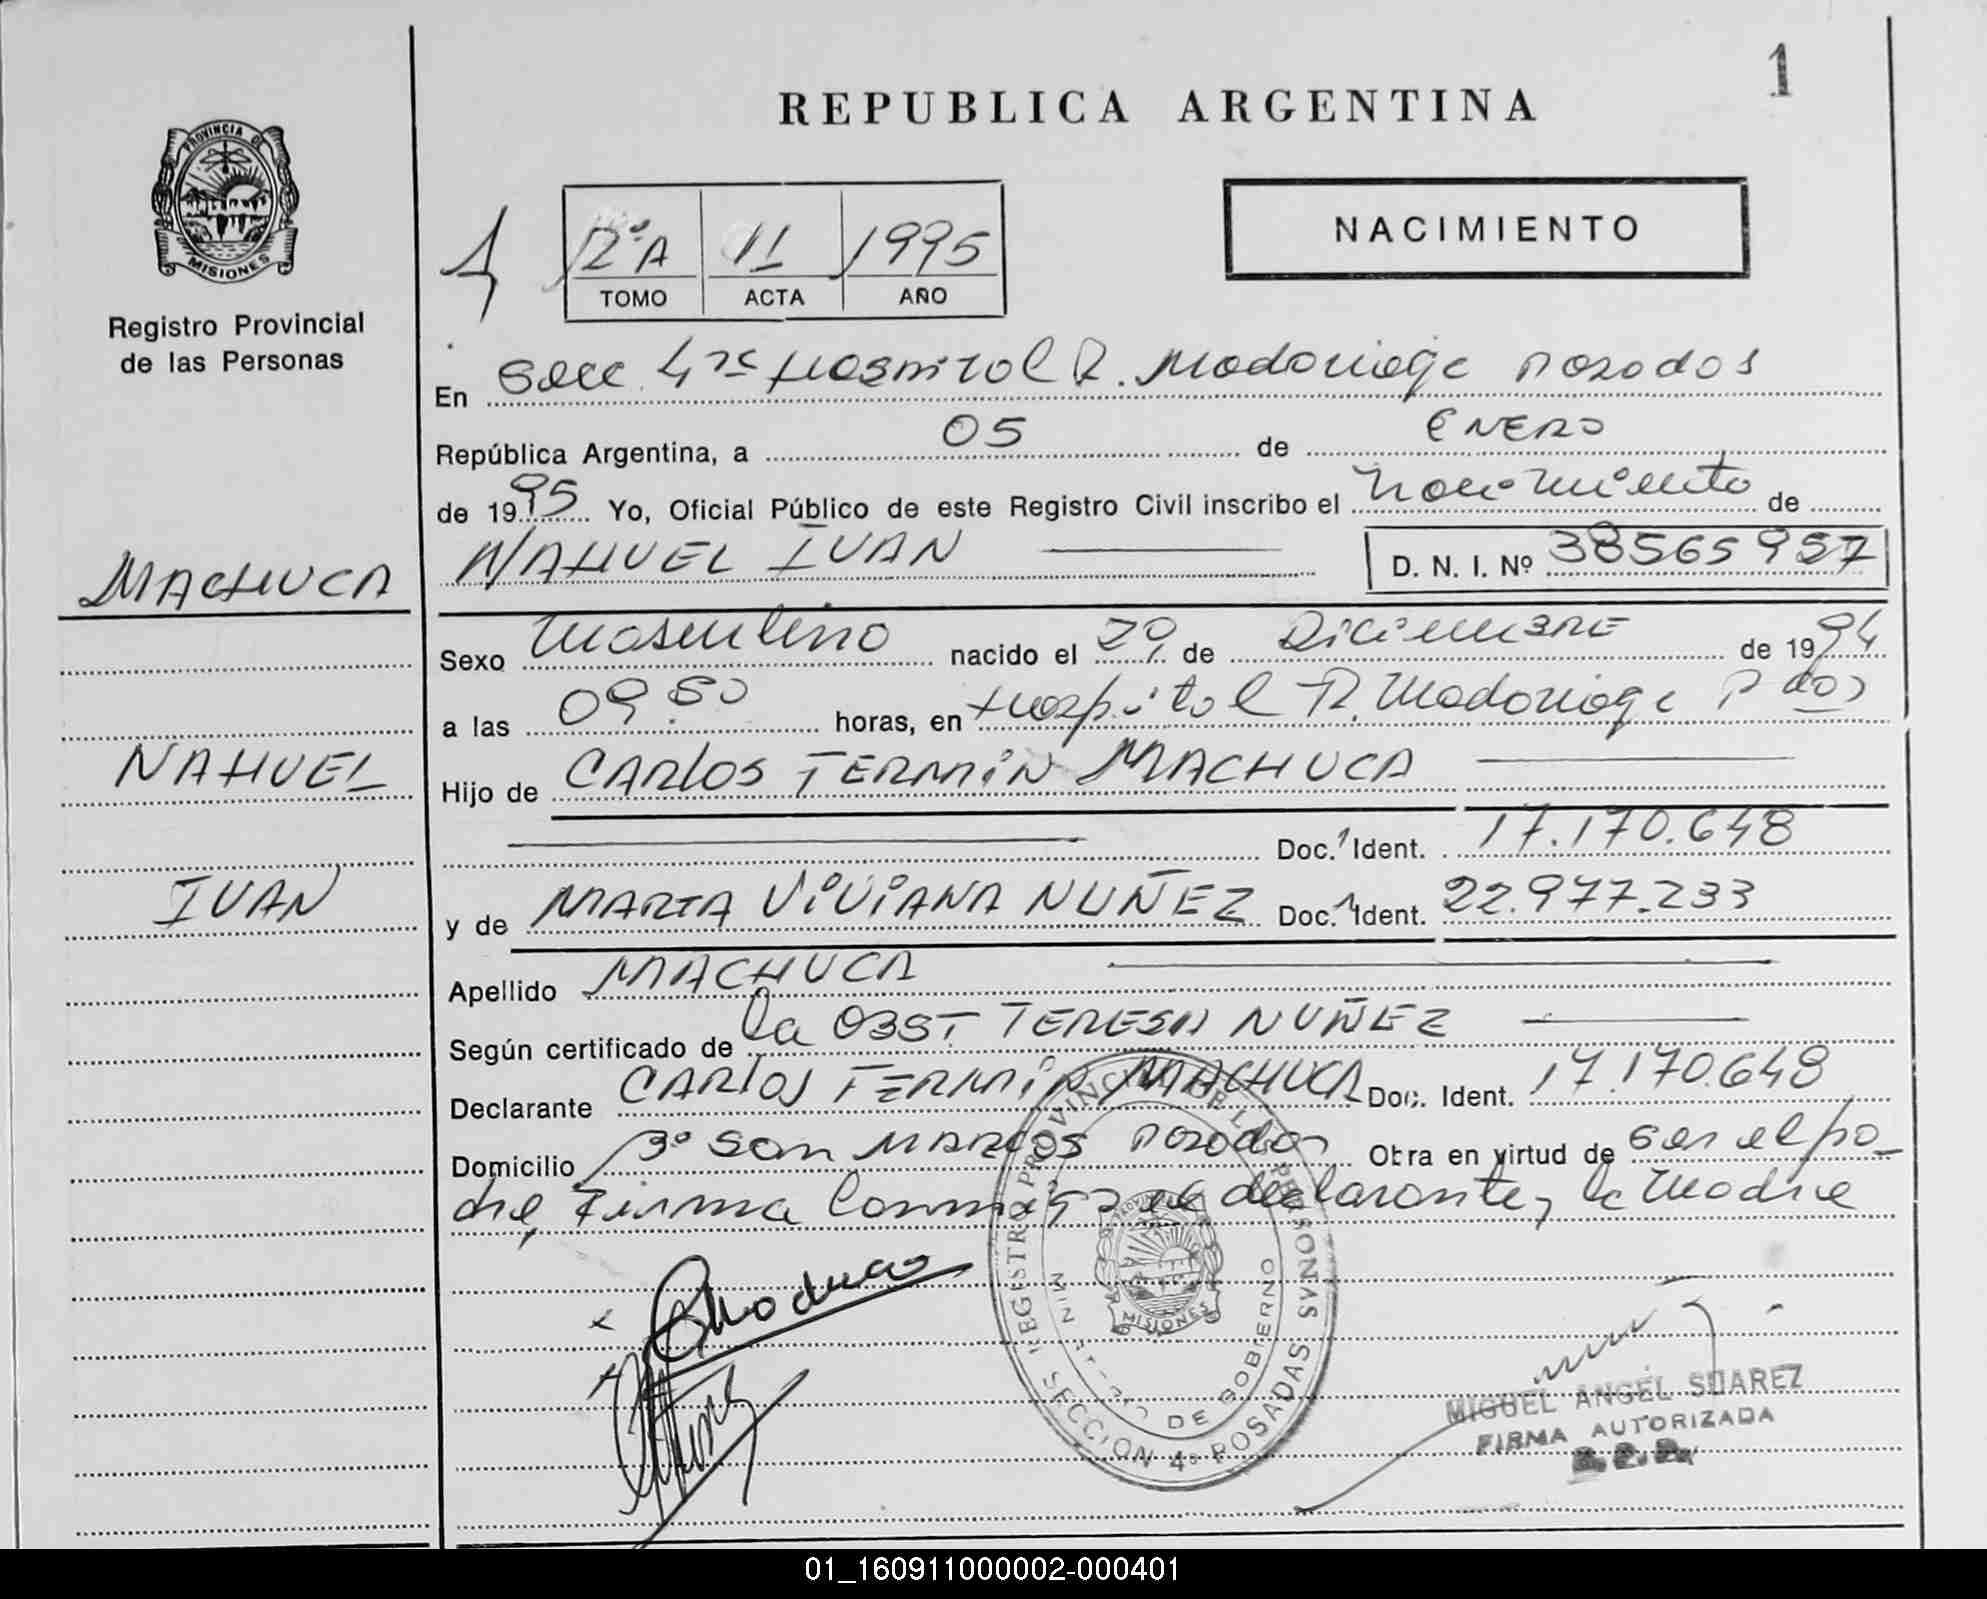 1
REPUBLICA ARGENTINA
PROVINCIA DE
MISIONES
Registro Provincial
de las Personas
1
2ºA 11 1995
TOMO ACTA AÑO
NACIMIENTO
En Secc 4ta Hospital R. Madariaga Posadas
República Argentina, a 05 de ENERO
de 1995 Yo, Oficial Público de este Registro Civil inscribo el nacimiento de
MACHUCA
NAHUEL IVAN D. N. I. Nº 38565957
Sexo Masculino nacido el 29 de Diciembre de 1994
a las 09 horas, en Hospital R. Madariaga Pdas
NAHUEL
Hijo de CARLOS FERMIN MACHUCA
Doc. Ident. 17.170.648
IVAN
y de MARTA ViViANA NUÑEZ Doc. Ident. 22.977.233
Apellido MACHUCA
Según certificado de la OBST. TERESA NUÑEZ
Declarante CARLOS FERMIN MACHUCA Doc. Ident. 17.170.648
Domicilio Bº San MARCOS Posadas Obra en virtud de ser el pa-
dre, Firma conmigo el declarante, la Madre
REGISTRO PROVINCIAL DE LAS PERSONAS
MINISTERIO DE GOBIERNO
MISIONES
SECCION 4º POSADAS
MIGUEL ANGEL SUAREZ
FIRMA AUTORIZADA
01_160911000002-000401